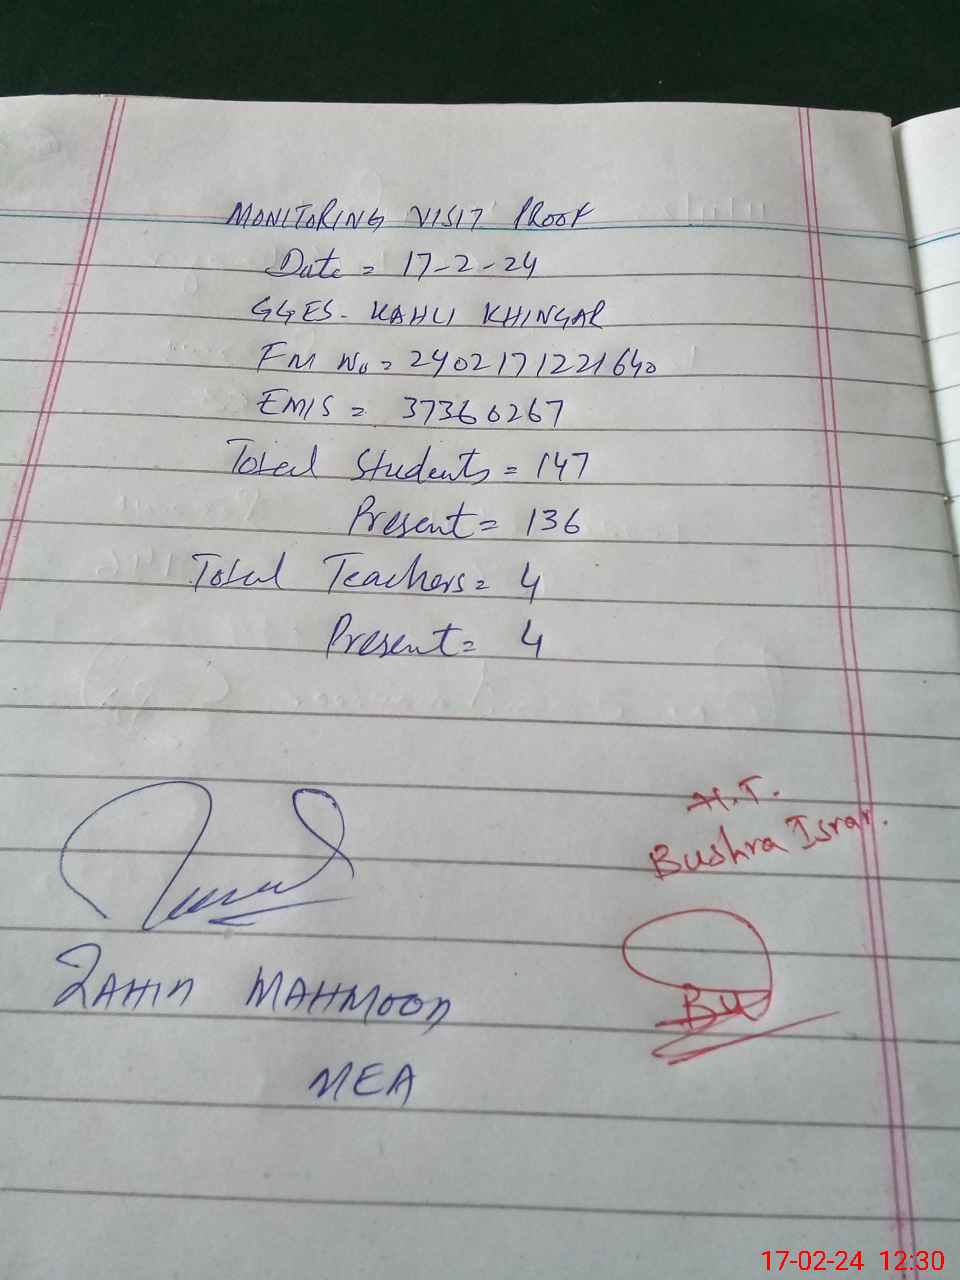 MONITORING VISIT PROOF
Date = 17-2-24
GGES- KAHLI KHINGAR
FM No = 2402171221640
EMIS = 37360267
Total Students = 147
Present = 136
Total Teachers = 4
Present = 4
H.T.
Bushra Israr.
ZAHID MAHMOOD
MEA
17-02-24 12:30